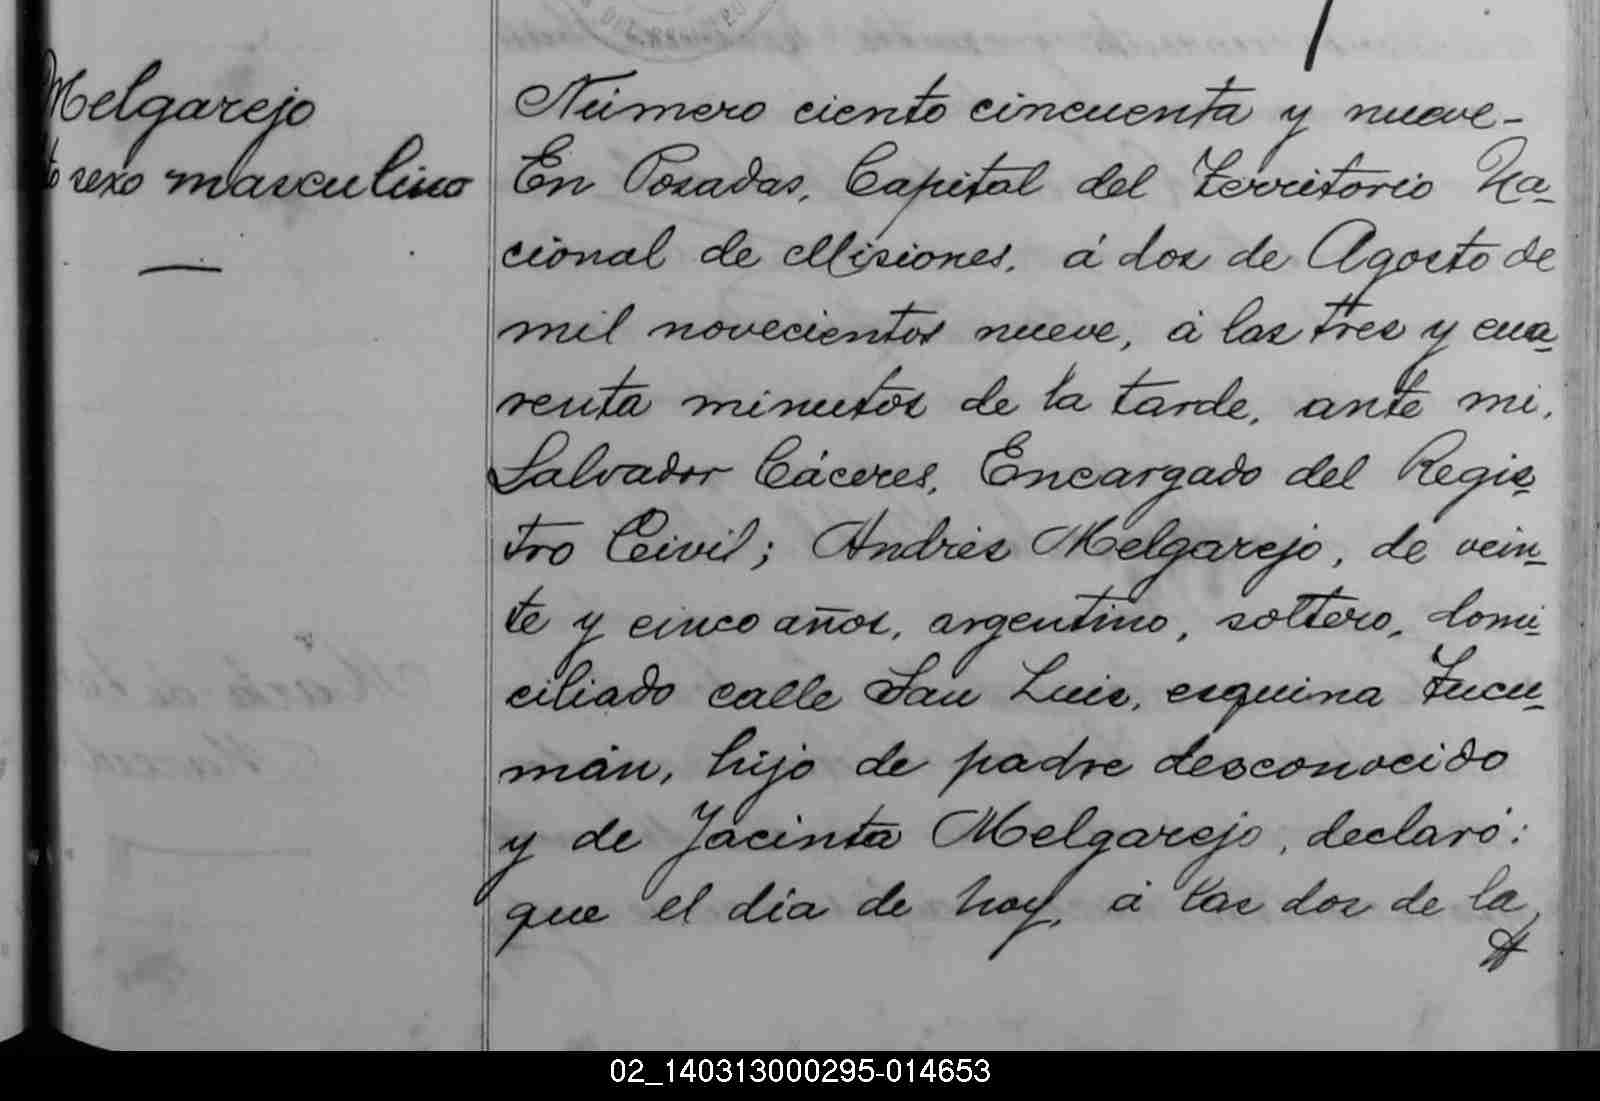 Melgarejo
to sexo masculino
Número ciento cincuenta y nueve-
En Posadas, Capital del Territorio Na-
cional de Misiones, á dos de Agosto de
mil novecientos nueve, á las tres y cua-
renta minutos de la tarde, ante mi,
Salvador Cáceres, Encargado del Regis-
tro Civil; Andrés Melgarejo, de vein-
te y cinco años, argentino, soltero, domi-
ciliado calle San Luis, esquina Tucu-
mán, hijo de padre desconocido
y de Jacinta Melgarejo, declaró:
que el día de hoy, á las dos de la
02_140313000295-014653